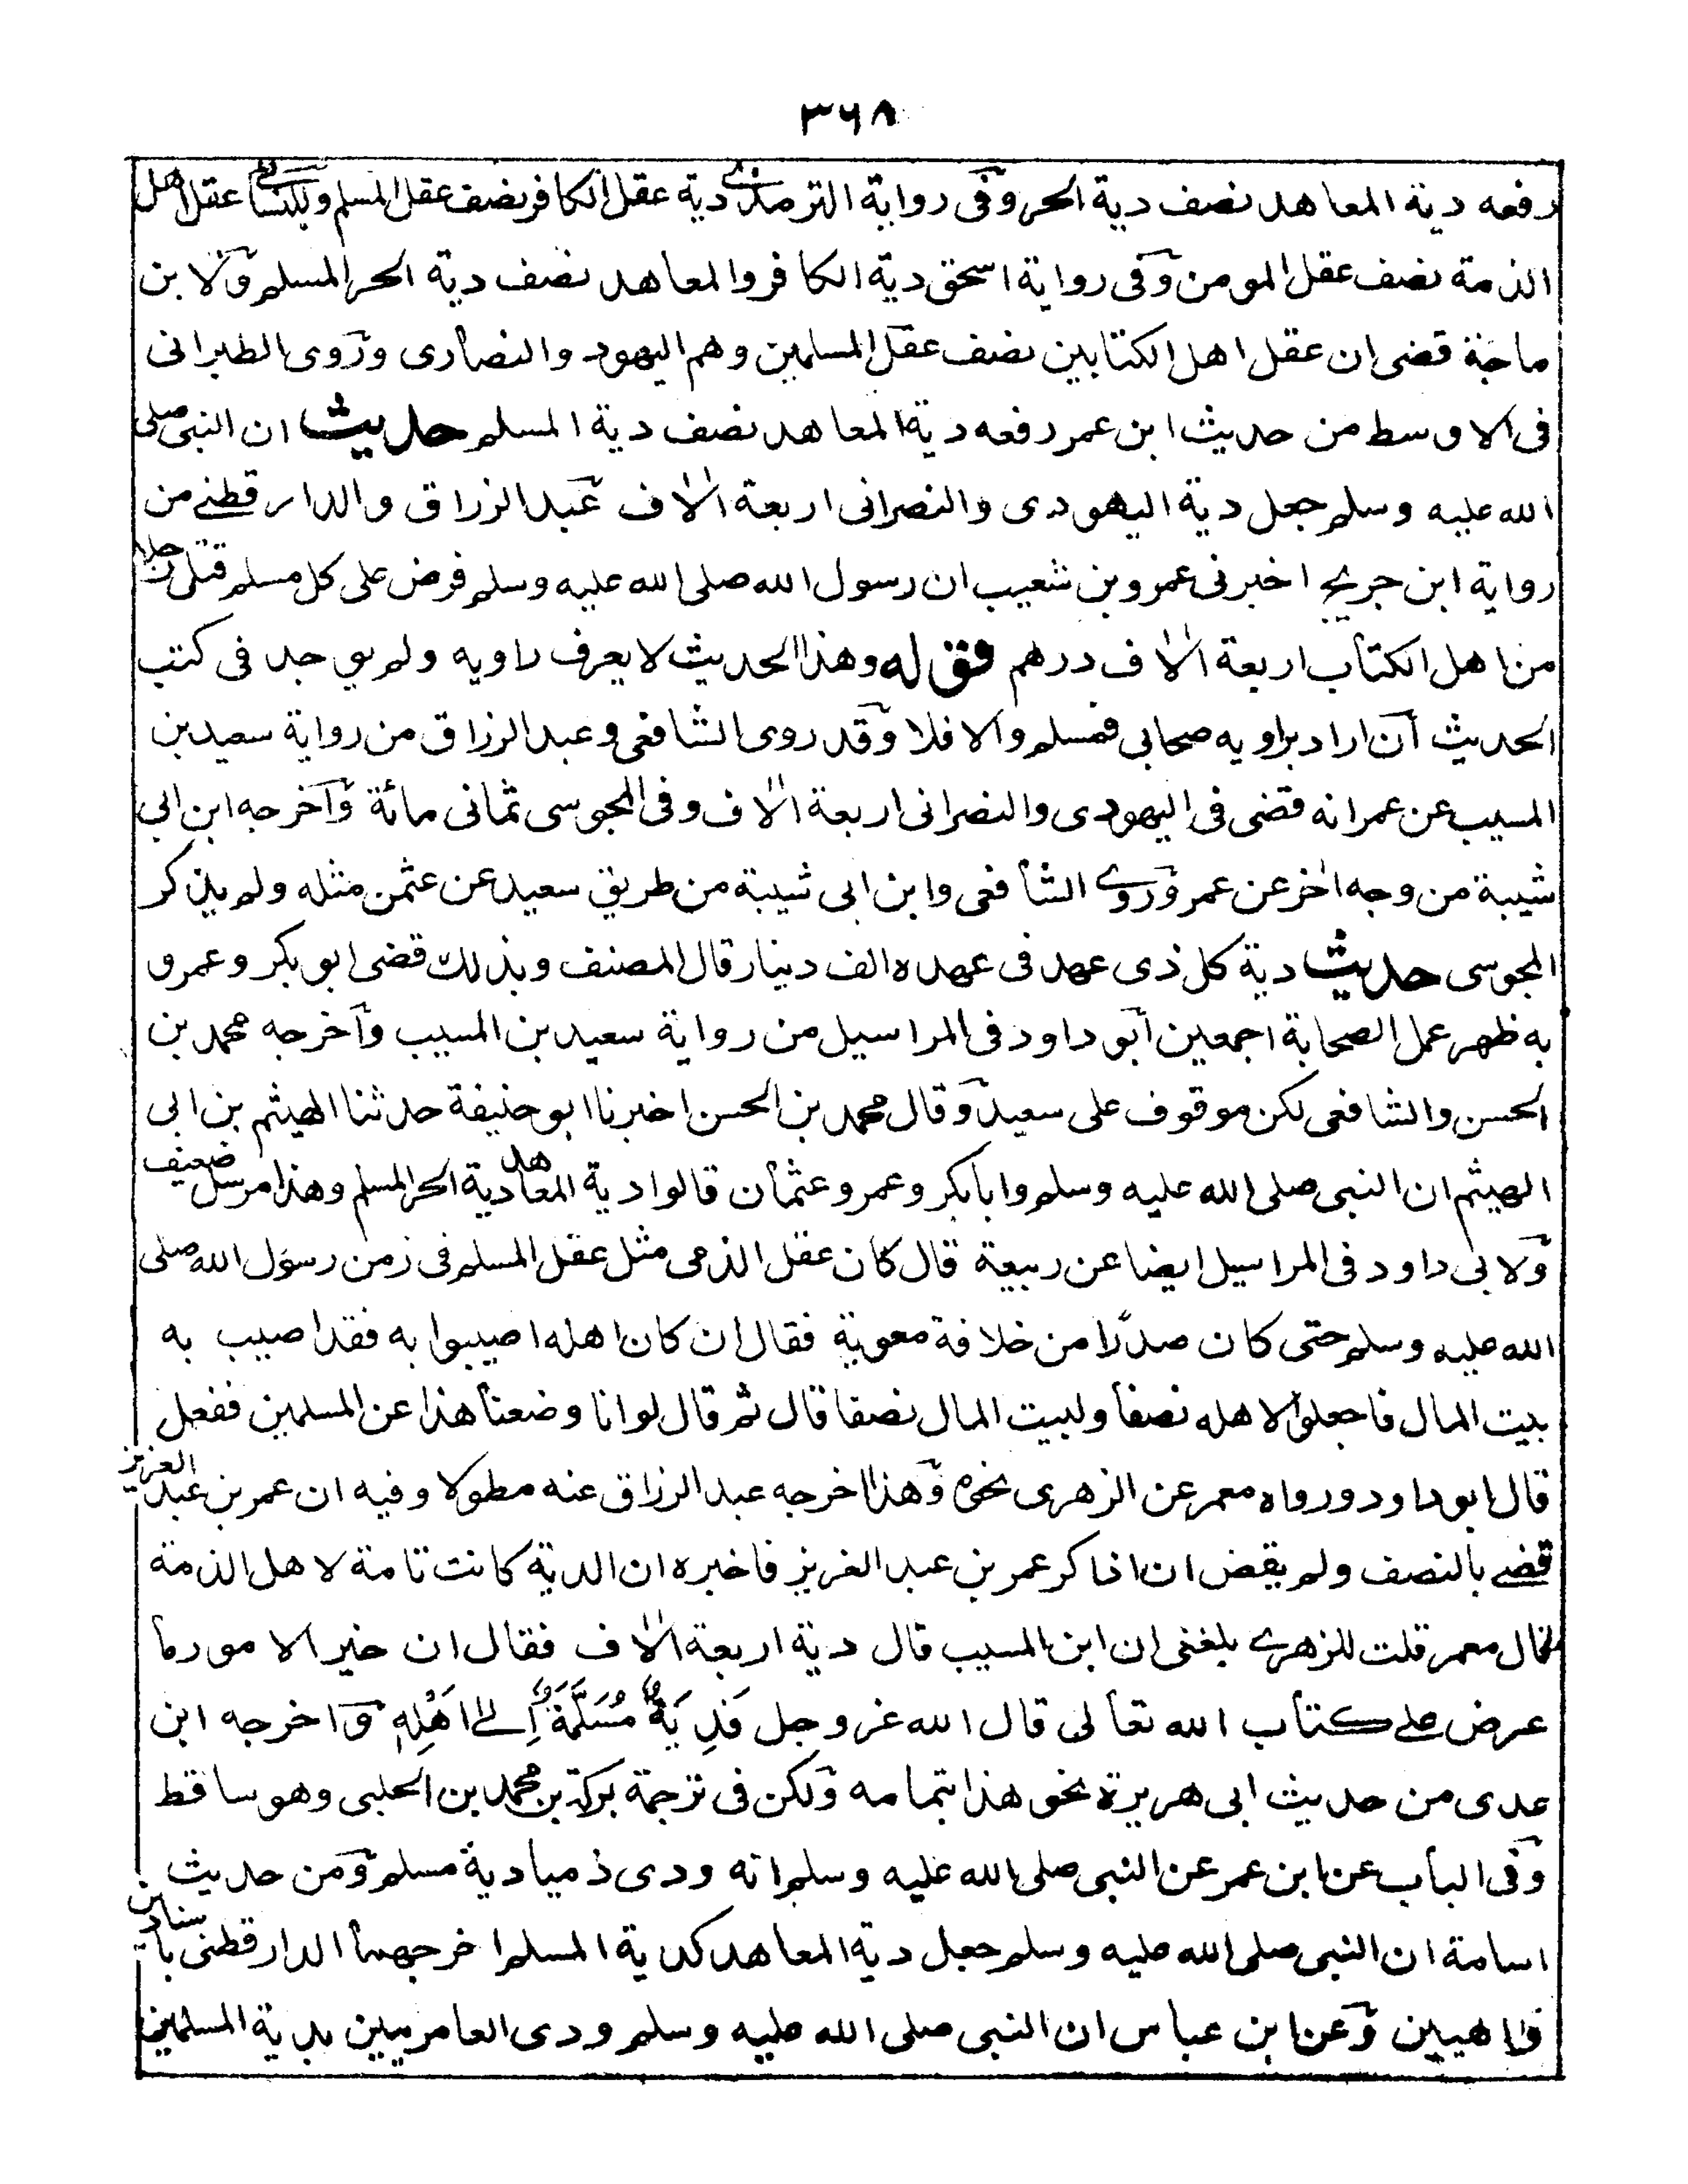 ۳۶۸
رفعه دية المعاهد نصف دية الحر وفى رواية الترمذے دية عقل الكافر نصف عقل المسلم وللنسائے عقل اهل
الذمة نصف عقل المومن وفى رواية اسحق دية الكافر والمعاهد نصف دية الحر المسلم ولابن
ماجة قضى ان عقل اهل الكتابين نصف عقل المسلمين وهم اليهود والنصارى وروى الطبرانى
فى الاوسط من حديث ابن عمر رفعه دية المعاهد نصف دية المسلم حديث ان النبى صلى
الله عليه وسلم جعل دية اليهودى والنصرانى اربعة الٰاف عبد الرزاق والدارقطنے من
رواية ابن جريج اخبرنى عمرو بن شعيب ان رسول الله صلى الله عليه وسلم فرض على كل مسلم قتل رجلا
من اهل الكتاب اربعة الٰاف درهم قوله وهذا الحديث لا يعرف راويه ولم يوجد فى كتب
الحديث ان اراد براويه صحابى فمسلم والا فلا وقد روى الشافعى وعبد الرزاق من رواية سعيد بن
المسيب عن عمر انه قضى فى اليهودى والنصرانى اربعة الٰاف وفى المجوسى ثمانى مائة واخرجه ابن ابى
شيبة من وجه اٰخر عن عمر وروے الشافعى وابن ابى شيبة من طريق سعيد عن عثمن مثله ولم يذكر
المجوسى حديث دية كل ذى عهد فى عهده الف دينار قال المصنف وبذلك قضى ابو بكر وعمر و
به ظهر عمل الصحابة اجمعين ابو داود فى المراسيل من رواية سعيد بن المسيب واخرجه محمد بن
الحسن والشافعى لكن موقوف على سعيد وقال محمد بن الحسن اخبرنا ابو حنيفة حدثنا الهيثم بن ابى
الهيثم ان النبى صلى الله عليه وسلم وابا بكر وعمر وعثمان قالوا دية المعاهد دية الحر المسلم وهذا مرسل ضعيف
ولابى داود فى المراسيل ايضا عن ربيعة قال كان عقل الذمى مثل عقل المسلم فى زمن رسول الله صلى
الله عليه وسلم حتى كان صدرا من خلافة معوية فقال ان كان اهله اصيبوا به فقد اصيب به
بيت المال فاجعلوا لاهله نصفا ولبيت المال نصفا قال ثم قال لو انا وضعنا هذا عن المسلمين ففعل
قال ابو داود ورواه معمر عن الزهرى نحوه وهذا اخرجه عبد الرزاق عنه مطولا وفيه ان عمر بن عبد العزيز
قضے بالنصف ولم يقض ان اذاكر عمر بن عبد العزيز فاخبره ان الدية كانت تامة لاهل الذمة
قال معمر قلت للزهرے بلغنى ان ابن المسيب قال دية اربعة الٰاف فقال ان خير الامور ما
عرض علے كتاب الله تعالى قال الله عز وجل فَدِيَةٌ مُسَلَّمَةٌ اِلٰے اَهْلِهٖ واخرجه ابن
عدى من حديث ابى هريرة نحو هذا بتمامه ولكن فى ترجمة بركة بن محمد بن الحلبى وهو ساقط
وفى الباب عن ابن عمر عن النبى صلى الله عليه وسلم انه ودى ذميا دية مسلم ومن حديث
اسامة ان النبى صلى الله عليه وسلم جعل دية المعاهد كدية المسلم اخرجهما الدارقطنى باسنادين
واهيين وعن ابن عباس ان النبى صلى الله عليه وسلم ودى العامريين بدية المسلمين